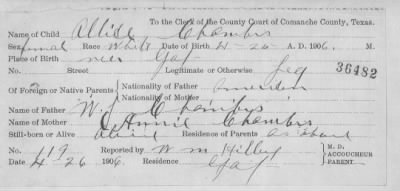 To the Clerk of the County Court of Comanche County, Texas.
Name of Child Allise Chambers
Sex femal Race White Date of Birth 4 - 26 - A. D. 1906. M.
Place of Birth near Gap
No. Street Legitimate or Otherwise Leg
36482
Of Foreign or Native Parents Nationality of Father American
Nationality of Mother
Name of Father W. J. Chambers
Name of Mother Annie Chambers
Still-born or Alive Alive Residence of Parents as above
No. 419 Reported by W M Hilley M. D.
Date 4 26 1906. Residence Gap ACCOUCHEUR
PARENT